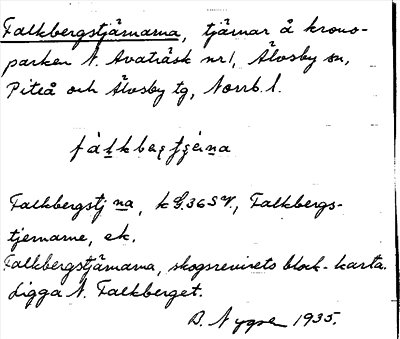 Falkbergstjärnarna, tjärnar å krono-
parken N. Avaträsk nr 1, Älvsby sn,
Piteå och Älvsby tg, Norrb. l.
Falkbergstj na, k G. 36 SV., Falkbergs-
tjernarne, ek.
Falkbergstjärnarna, skogsrevirets block-karta.
Ligga N. Falkberget.
1935.